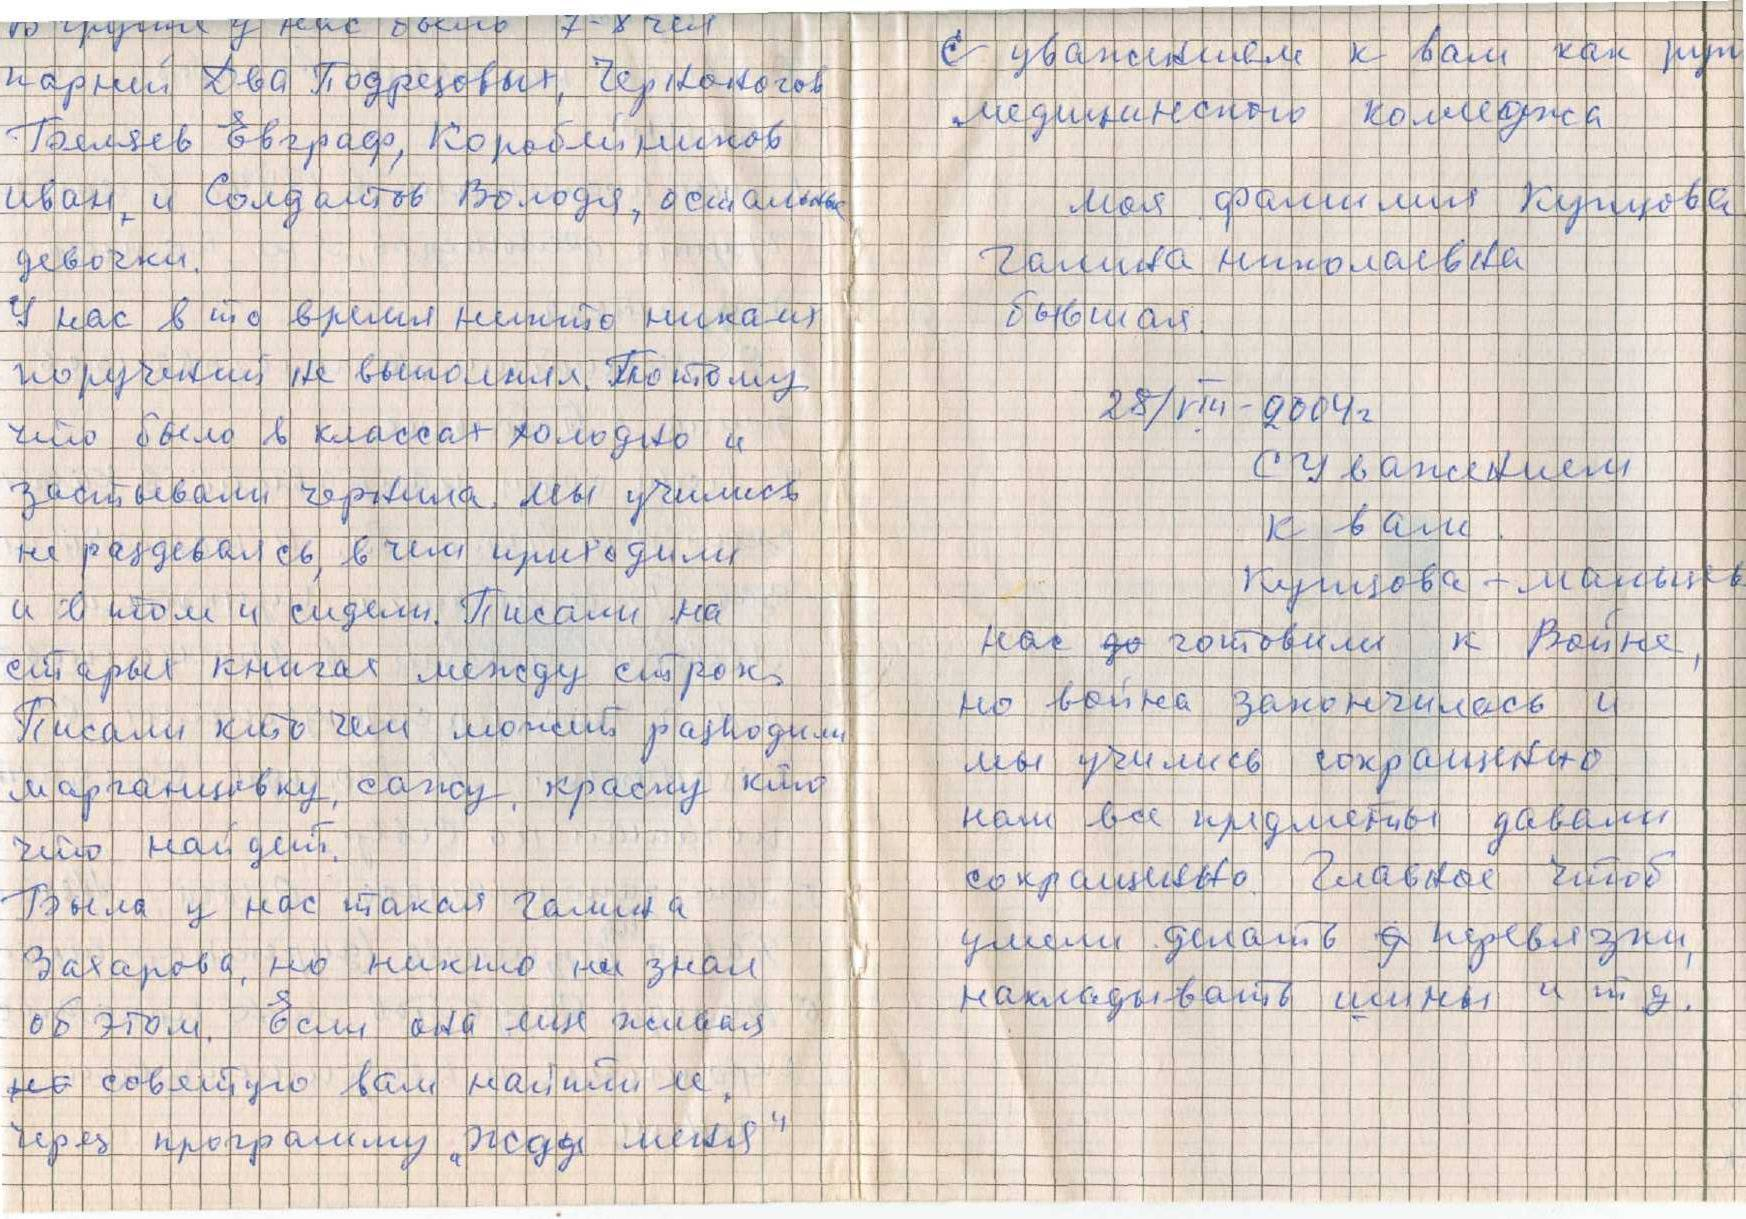 В группе у нас было 7-8 чел
парней Два Подрезовых, Черноногов
Беляев Евграф, Коробейников
иван, и Солдатов Володя, остальные
девочки.
У нас в то время никто никаих
поручений не выполнял. Потому
что было в классах холодно и
застывали чернила. Мы учились
не раздеваясь, в чем приходили
и в том и сидели. Писали на
старых книгах между строк.
Писали кто чем может разводили
марганцевку, сажу, краску кто
что найдет.
Была у нас такая Галина
Захарова, но никто не знал
об этом. Если она еще живая
но советую вам найти ее,
через программу „Жди меня"
С уважением к вам как
медицинского колледжа
Моя фамилия Купцова
Галина николаевна
бывшая.
28/VIII - 2004г
С Уважением
к вам.
Купцова -
нас до готовили к Войне,
но война закончилась и
мы учились сокращенно
нам все предметы давали
сокращенно. Главное чтоб
умели делать перевязки,
накладывать шины и т д.